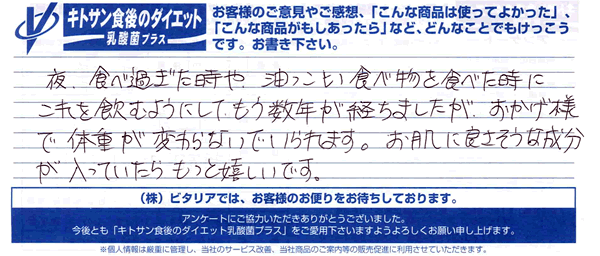 キトサン食後のダイエット
乳酸菌プラス
お客様のご意見やご感想、「こんな商品は使ってよかった」、
「こんな商品がもしあったら」など、どんなことでもけっこう
です。お書き下さい。
夜、食べ過ぎた時や、油っこい食べ物を食べた時に
これを飲むようにして、もう数年が経ちましたが、おかげ様
で体重が変わらないでいられます。お肌に良さそうな成分
が入っていたらもっと嬉しいです。
(株)ビタリアでは、お客様のお便りをお待ちしております。
アンケートにご協力いただきありがとうございました。
今後とも「キトサン食後のダイエット乳酸菌プラス」をご愛用下さいますようよろしくお願い申し上げます。
※個人情報は厳重に管理し、当社のサービス改善、当社商品のご案内等の販売促進に利用させていただきます。